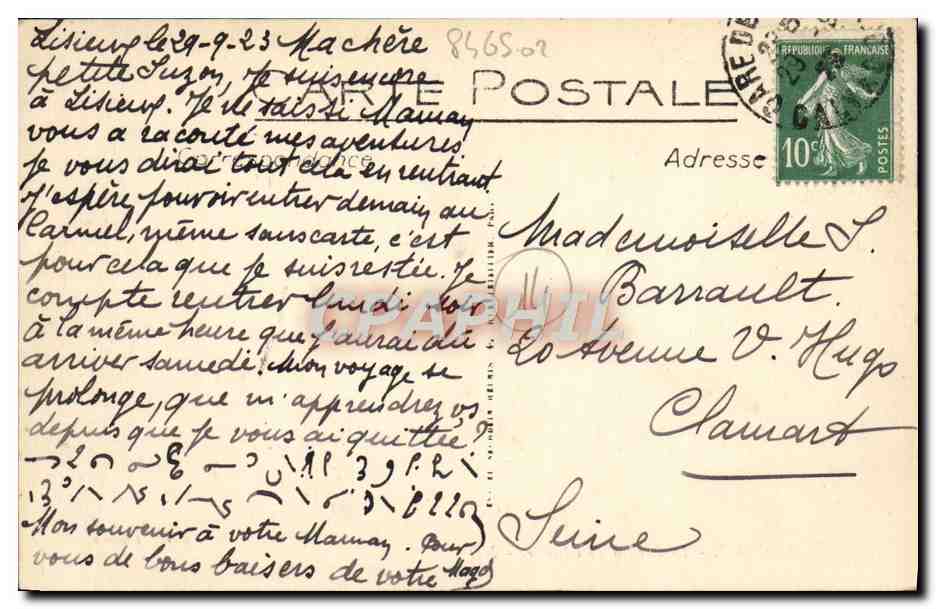 Lisieux le 29-9-23 Ma chère
petite Suzon, Je suis encore
à Lisieux. Je ne sais si Maman
vous a raconté mes aventures
je vous dirai tout cela en rentrant
J'espère pouvoir entrer demain au
Carmel, même sans carte, c'est
pour cela que je suis restée. Je
compte rentrer lundi soir
à la même heure que j'aurai dû
arriver samedi. Mon voyage se
prolonge, que m'apprendrez vs
depuis que je vous ai quittée?
Mon souvenir à votre Maman. Pour
vous de bons baisers de votre Mago
8465 02
CARTE POSTALE
Correspondance
Adresse
GARE DE
REPUBLIQUE FRANÇAISE
10c
POSTES
Mademoiselle S.
Barrault.
20 Avenue V. Hugo
Clamart
Seine
CPAPHIL